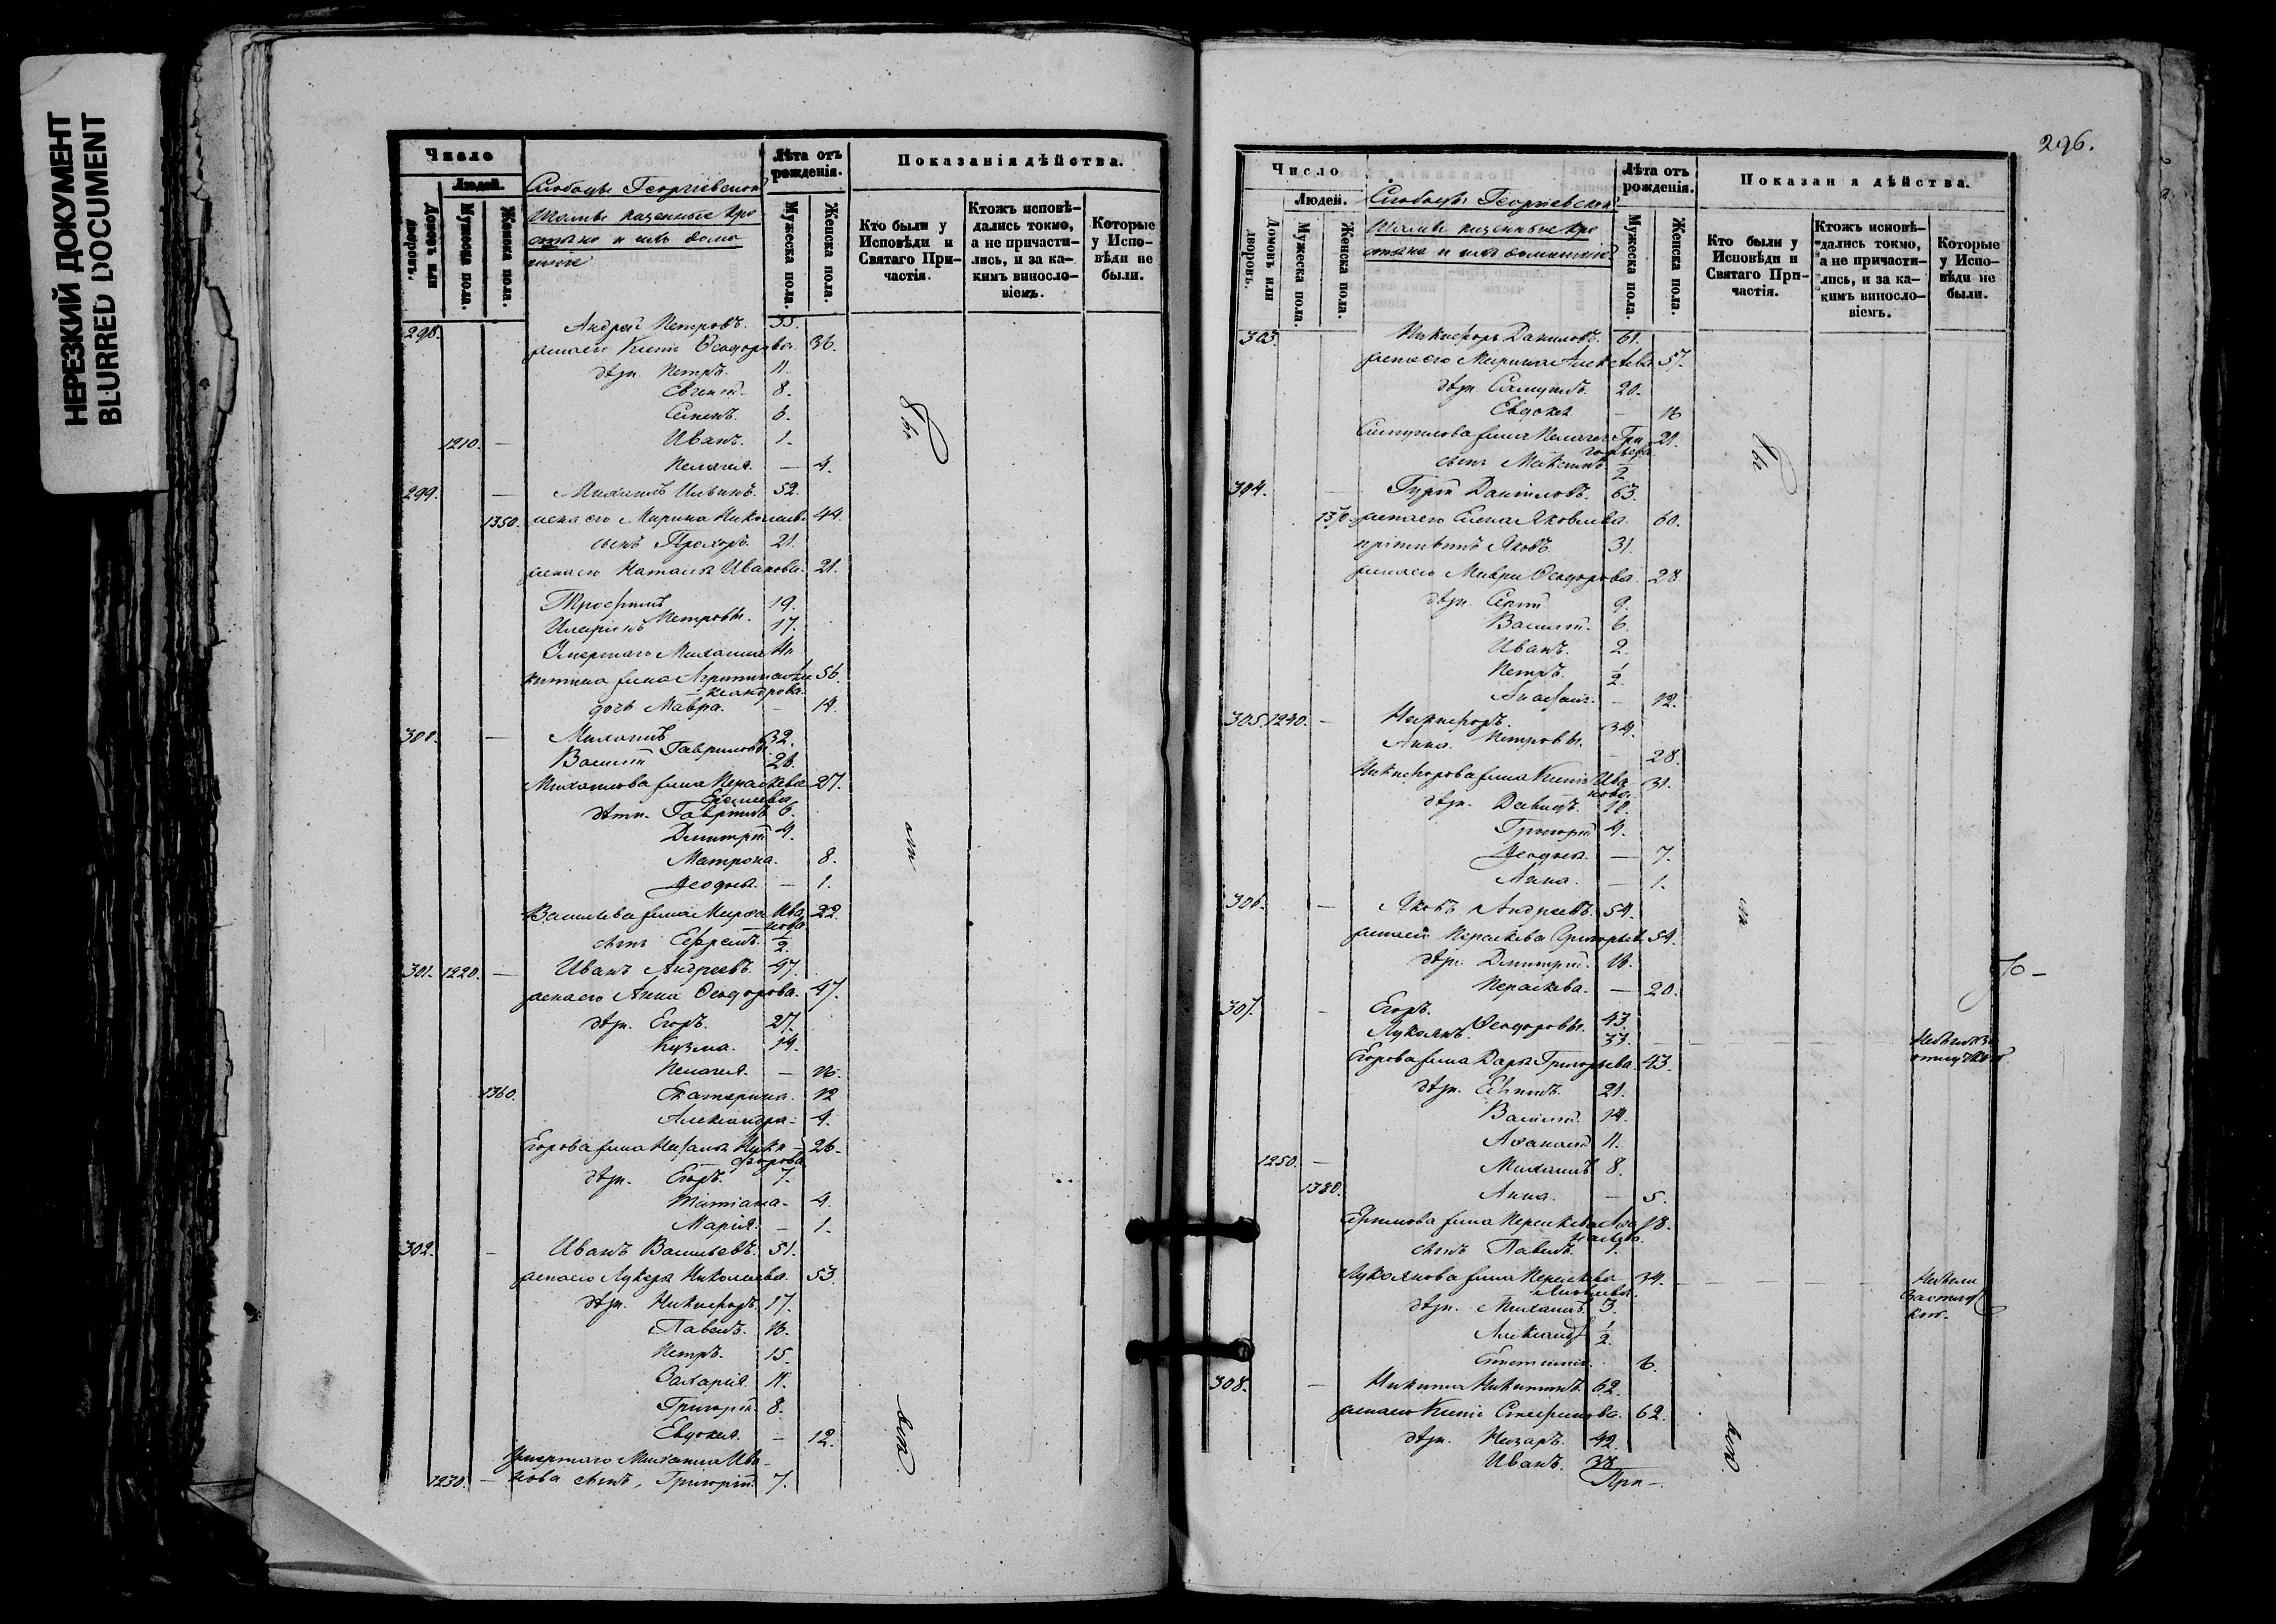 НЕРЕЗКИЙ ДОКУМЕНТ
BLURRED DOCUMENT
Число
Людей.
Домовъ или дворовъ.
Мужеска пола.
Женска пола.
Слободы Георгіевской
казенные кре
стьяне и ихъ дома
шніе
Лѣта отъ рожденія.
Мужеска пола.
Женска пола.
Показанія дѣйства.
Кто были у Исповѣди и Святаго Причастія.
Ктожъ исповѣдались токмо, а не причастились, и за какимъ винословіемъ.
Которые у Исповѣди не были.
298. Андрей Петровъ. 35.
жена его Ксенія Ѳеодорова. 36.
дѣти. Петръ. 11.
Евгеній. 8.
Семенъ. 6.
1210. — Иванъ. 1.
Пелагея. — 4.
299. — Михаилъ Ильинъ. 52.
1350. жена его Марина Николаева 44.
сынъ Прохоръ. 21.
жена его Наталья Иванова. 21.
Трофимъ 19.
Петровы.
Иларіонъ 17.
Умершаго Михаила Ни
китина жена Агрипина Але 56.
ксандрова.
дочь Мавра. — 14.
300. — Михаилъ 32.
Гавриловы.
Василій 26.
Михаилова жена Параскева 27.
дѣти. Гавріилъ 6.
Дмитрій 4.
Матрона. 8.
Ѳеодосья. — 1.
Васильева жена Марѳа Ива 22.
нова
сынъ Ефремъ. 1/2.
301. 1220. — Иванъ Андреевъ. 47.
жена его Анна Ѳеодорова. 47.
дѣти. Егоръ. 27.
Кузма. 14.
Пелагея. — 16.
1360. Екатерина. 12
Александра. 4.
Егорова жена Наталья Ники 26.
форова
дѣти. Егоръ. 7.
Татіана. 4.
Марія. — 1.
302. — Иванъ Васильевъ. 51.
жена его Лукерья Николаева. 53.
дѣти. Никифоръ. 17.
Павелъ. 16.
Петръ. 15.
Захарія. 11.
Григорій. 8.
Евдокея. — 12.
Умершаго Михаила Ива
1230. — нова сынъ, Григорій. 7.
Бы
ли
вси.
296.
Число
Людей.
Домовъ или дворовъ.
Мужеска пола.
Женска пола.
Слободы Георгіевской
казенные кре
стьяне и ихъ домашніе
Лѣта отъ рожденія.
Мужеска пола.
Женска пола.
Показан я дѣйства.
Кто были у Исповѣди и Святаго Причастія.
Ктожъ исповѣдались токмо, а не причастились, и за какимъ винословіемъ.
Которые у Исповѣди не были.
303. Никифоръ Даниловъ. 61.
жена его Марина Алексѣева 57.
дѣти. Самуилъ. 20.
Евдокея — 16
Самуилова жена Пелагея Гри 21.
горьева
сынъ Максимъ 1/2
304. — Гурій Даніиловъ. 63.
1370. жена его Елена Яковлева. 60.
пріемышъ Яковъ. 31.
жена его Мавра Ѳеодорова. 28
дѣти. Сергій 9.
Василій. 6.
Иванъ. 2.
Петръ. 1/2.
— 12.
305. 1240. — Никифоръ. 34.
Петровы.
Анна. 28.
Никифорова жена Ксенія Ива 31.
нова.
дѣти. Давидъ. 10.
Григорій 4.
Ѳеодосья. — 7.
Анна. — 1.
306. — Яковъ Андреевъ. 54.
жена его Параскева Григорьев. 54.
дѣти. Дмитрій. 16.
Параскева. — 20.
307. — Егоръ. 43.
Ѳеодоровы.
Лукьянъ. 37.
Егорова жена Дарья Григорьева. 43.
дѣти. Евѳимъ. 21.
Василій. 14.
Аѳанасій 11.
1250. — Михаилъ 8.
1380. Анна. — 5.
жена Параскева 18.
сынъ Павелъ. 1.
Лукьянова жена Параскева 34.
дѣти. Михаилъ. 3.
Александр 1/2.
6.
308. — Никита Никитинъ. 62.
жена его Ксенія Стефанова. 62.
дѣти. Назаръ. 42.
Иванъ. 38
При —
Бы
ли
вси.